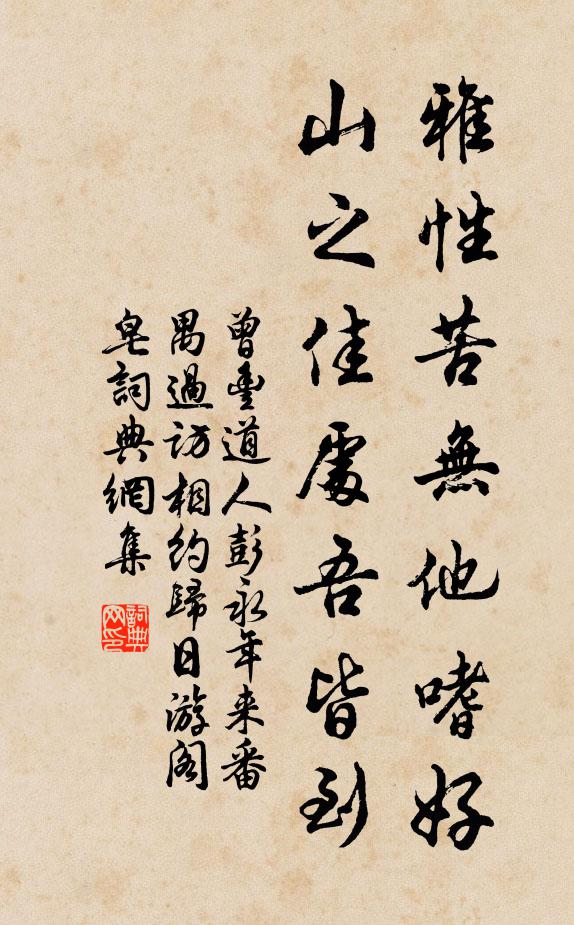 雅性苦無他嗜好
山之佳處吾皆到
曾豐道人彭永年来番
禺過访相约歸日游阁
皂詞典網集
詞典网印